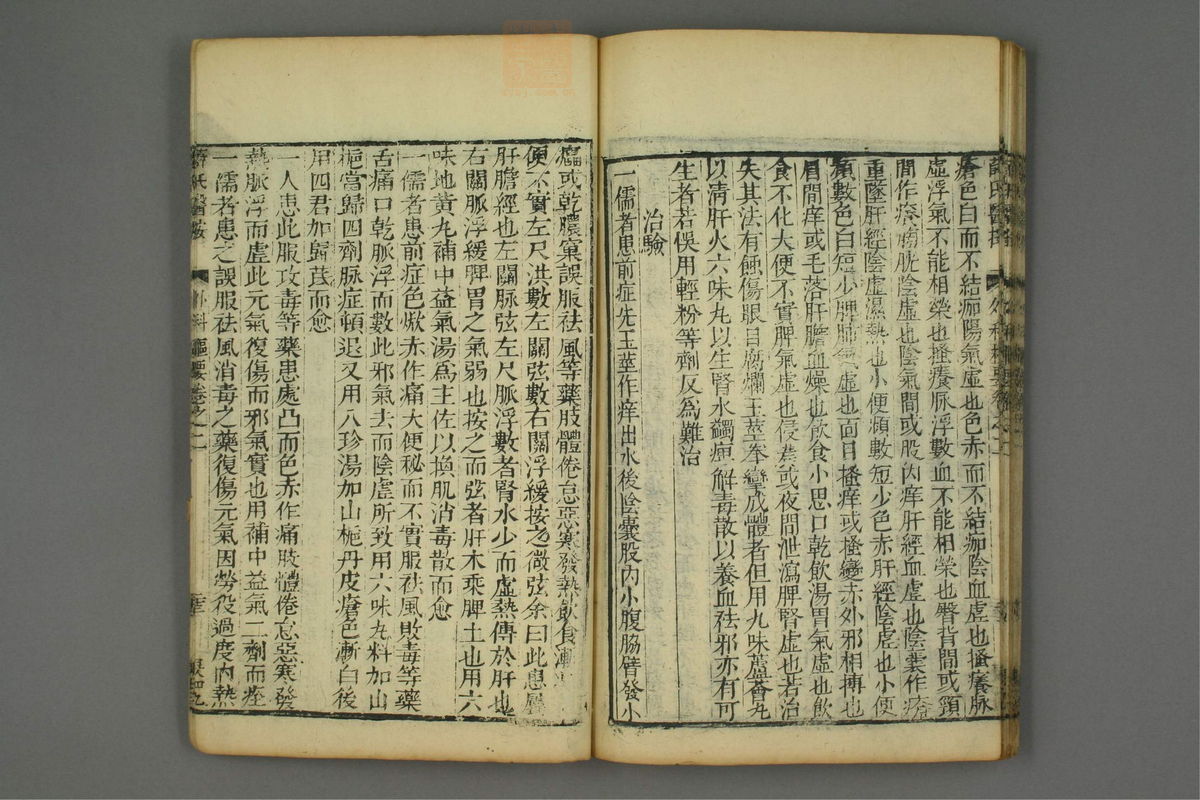 瘡色白而不結痂陽氣虛也色赤而不結痂陰血虛也搔癢脉
虛浮氣不能相榮也搔癢脈浮數血不能相榮也臀背間或頸
間作痒膀胱陰虛也陰氣間或股內痒肝經血虛也陰囊作痒
重墜肝經陰虛濕熱也小便頻數短少色赤肝經陰虛也小便
頻數色白短少脾肺氣虛也面目搔痒或搔變赤外邪相搏也
眉間痒或毛落肝膽血燥也飲食小思口乾飲湯胃氣虛也飲
食不化大便不實脾氣虛也侵晨或夜間泄瀉脾腎虛也若治
失其法有蝕傷眼目腐爛玉莖拳攣成體者但用九味蘆薈丸
以清肝火六味丸以生腎水蠲痺解毒散以養血祛邪亦有可
生者若悞用輕粉等劑反爲難治
治驗
一儒者患前症先玉莖作痒出水後陰囊股內小腹脇臂發小
瘟或乾膿窠誤服祛風等藥肢體倦怠惡寒發熱飲食漸
便不實左尺洪數左關弦數右關浮緩按之微弦余曰此患屬
肝膽經也左關脉弦左尺脈浮數者腎水少而虛熱傳於肝也
右關脈浮緩脾胃之氣弱也按之而弦者肝木乘脾土也用六
味地黃丸補中益氣湯爲主佐以換肌消毒散而愈
一儒者患前症色焮赤作痛大便秘而不實服祛風敗毒等藥
舌痛口乾脈浮而數此邪氣去而陰虛所致用六味丸料加山
梔當歸四劑脉症頓退又用八珍湯加山梔丹皮瘡色漸白後
用四君加歸芪而愈
一人患此服攻毒等藥患處凸而色赤作痛肢體倦怠惡寒發
熱脈浮而虛此元氣復傷而邪氣實也用補中益氣二劑而痊
一儒者患之誤服祛風消毒之藥復傷元氣因勞役過度內熱
薛氏醫按 外科樞要卷之二